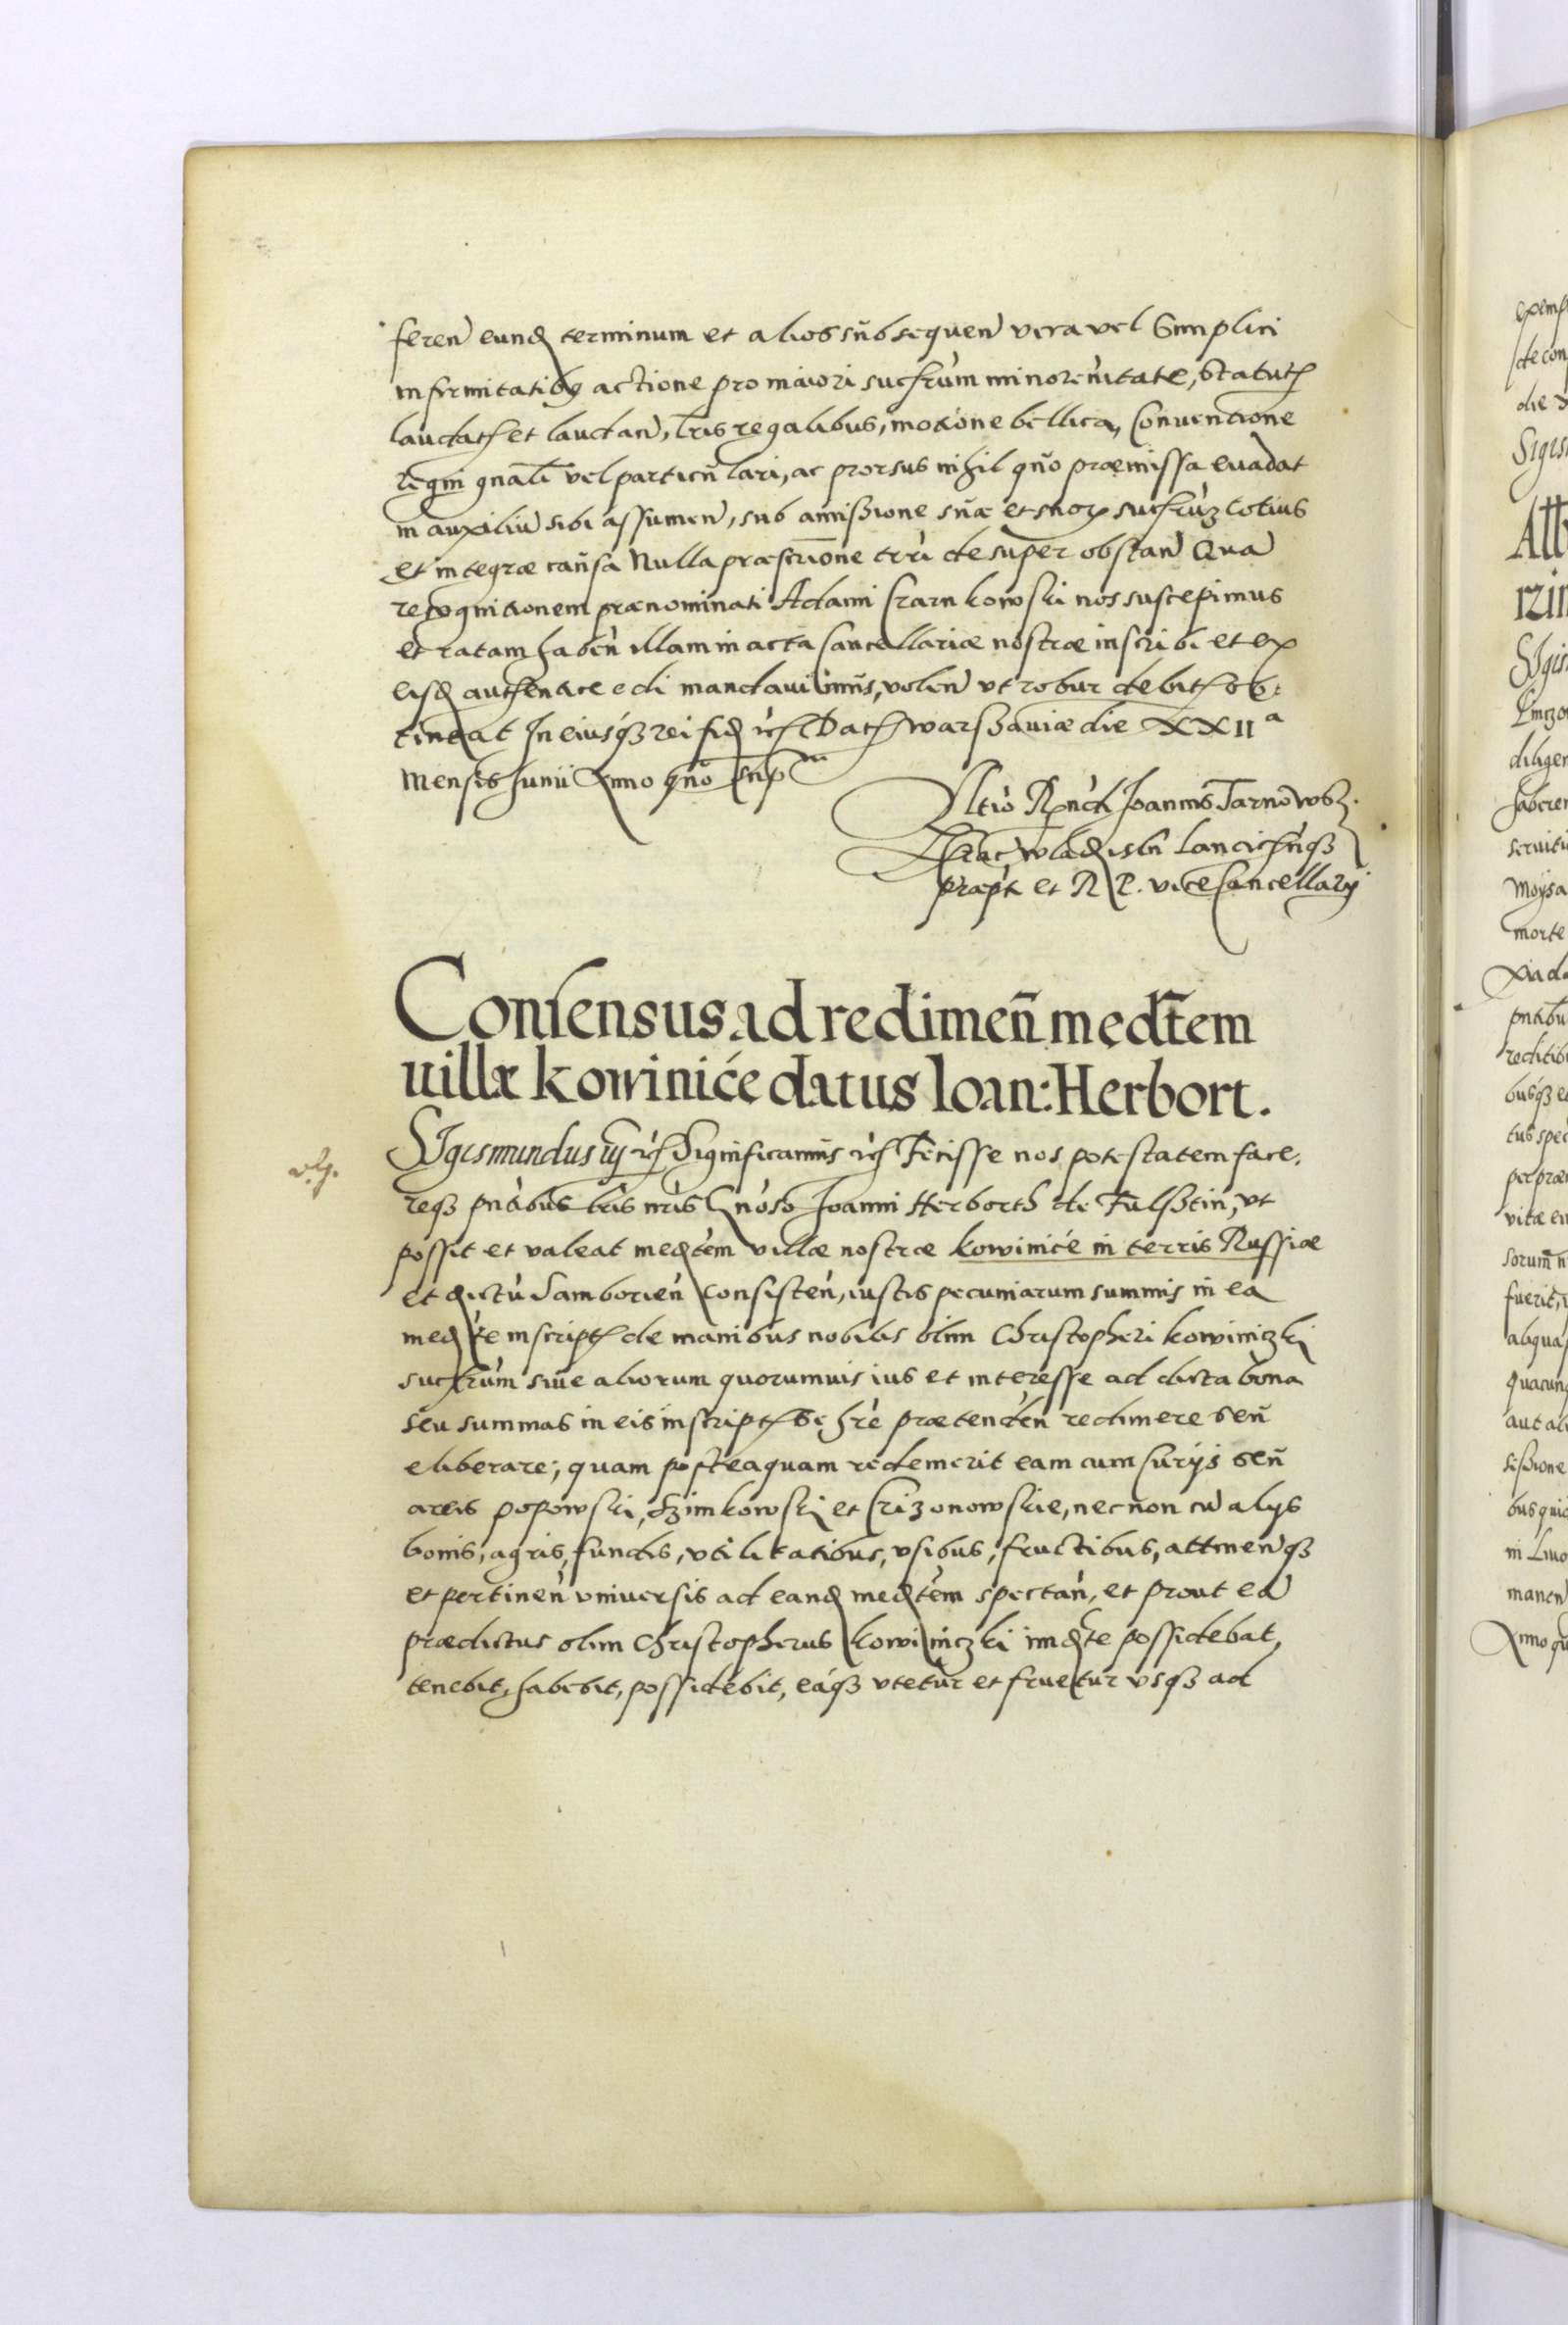 feren eund terminum et alios subsequen vera vel Simplici
infirmitatibus actione pro maiori succrum minorenitate, statut
laudat et laudan, Lris regalibus, motione bellica, Conventione
regni gnali vel particulari, ac prorsus nihil quo præmissa evadat
in auxiliu sibi assumen, sub amissione suæ et suor succruz totius
et integræ causa Nulla præscrione trri desuper obstan Qua
recognitionem prænominati Adami Czarnkowski nos suscepimus
et ratam haben illam in acta Cancellariæ nostræ inscribi et ex
eisd authentice edi mandavimus, volen vt robur debit ob:
tineat In eiusqz rei fid etc Dat Warssaviæ die XXII a
Mensis Junii Anno quo supra
Rltio Rndi Joannis Tarnowsz.
Crac, Wladisln Lanciciensqz
præpti et R P. viceCancellarij
Consensus ad redimeñ medtem
uillæ Kowinice datus Ioan: Herbort.
SIgismundus iij etc Significamus etc Fecisse nos potestatem face,
reqz pntibus lris nris Gnoso Joanni Herborth de Fulsztin, vt
possit et valeat medtem villæ nostræ Kowinicé in terris Russiæ
et dictu Samborien consisten, iustis pecuniarum summis in ea
medte inscript de manibus nobilis olim Christopheri Kowiniczki
succrum sive aliorum quorumvis ius et interesse ad dicta bona
seu summas in eis inscript se hre prætenden redimere seu
eliberare; quam posteaquam redemerit eam cum curijs seu
areis Popowski, Szimkowski et Crizonowskie, necnon cu alys
bonis, agris, fundis, vtilitatibus, vsibus, fructibus, attinenqz
et pertinen vniversis ad eand medtem spectan, et prout ea
prædictus olim Christopherus Kowiniczki immdte possidebat,
tenebit, habebit, possidebit, eáqz vtetur et fruetur vsqz ad